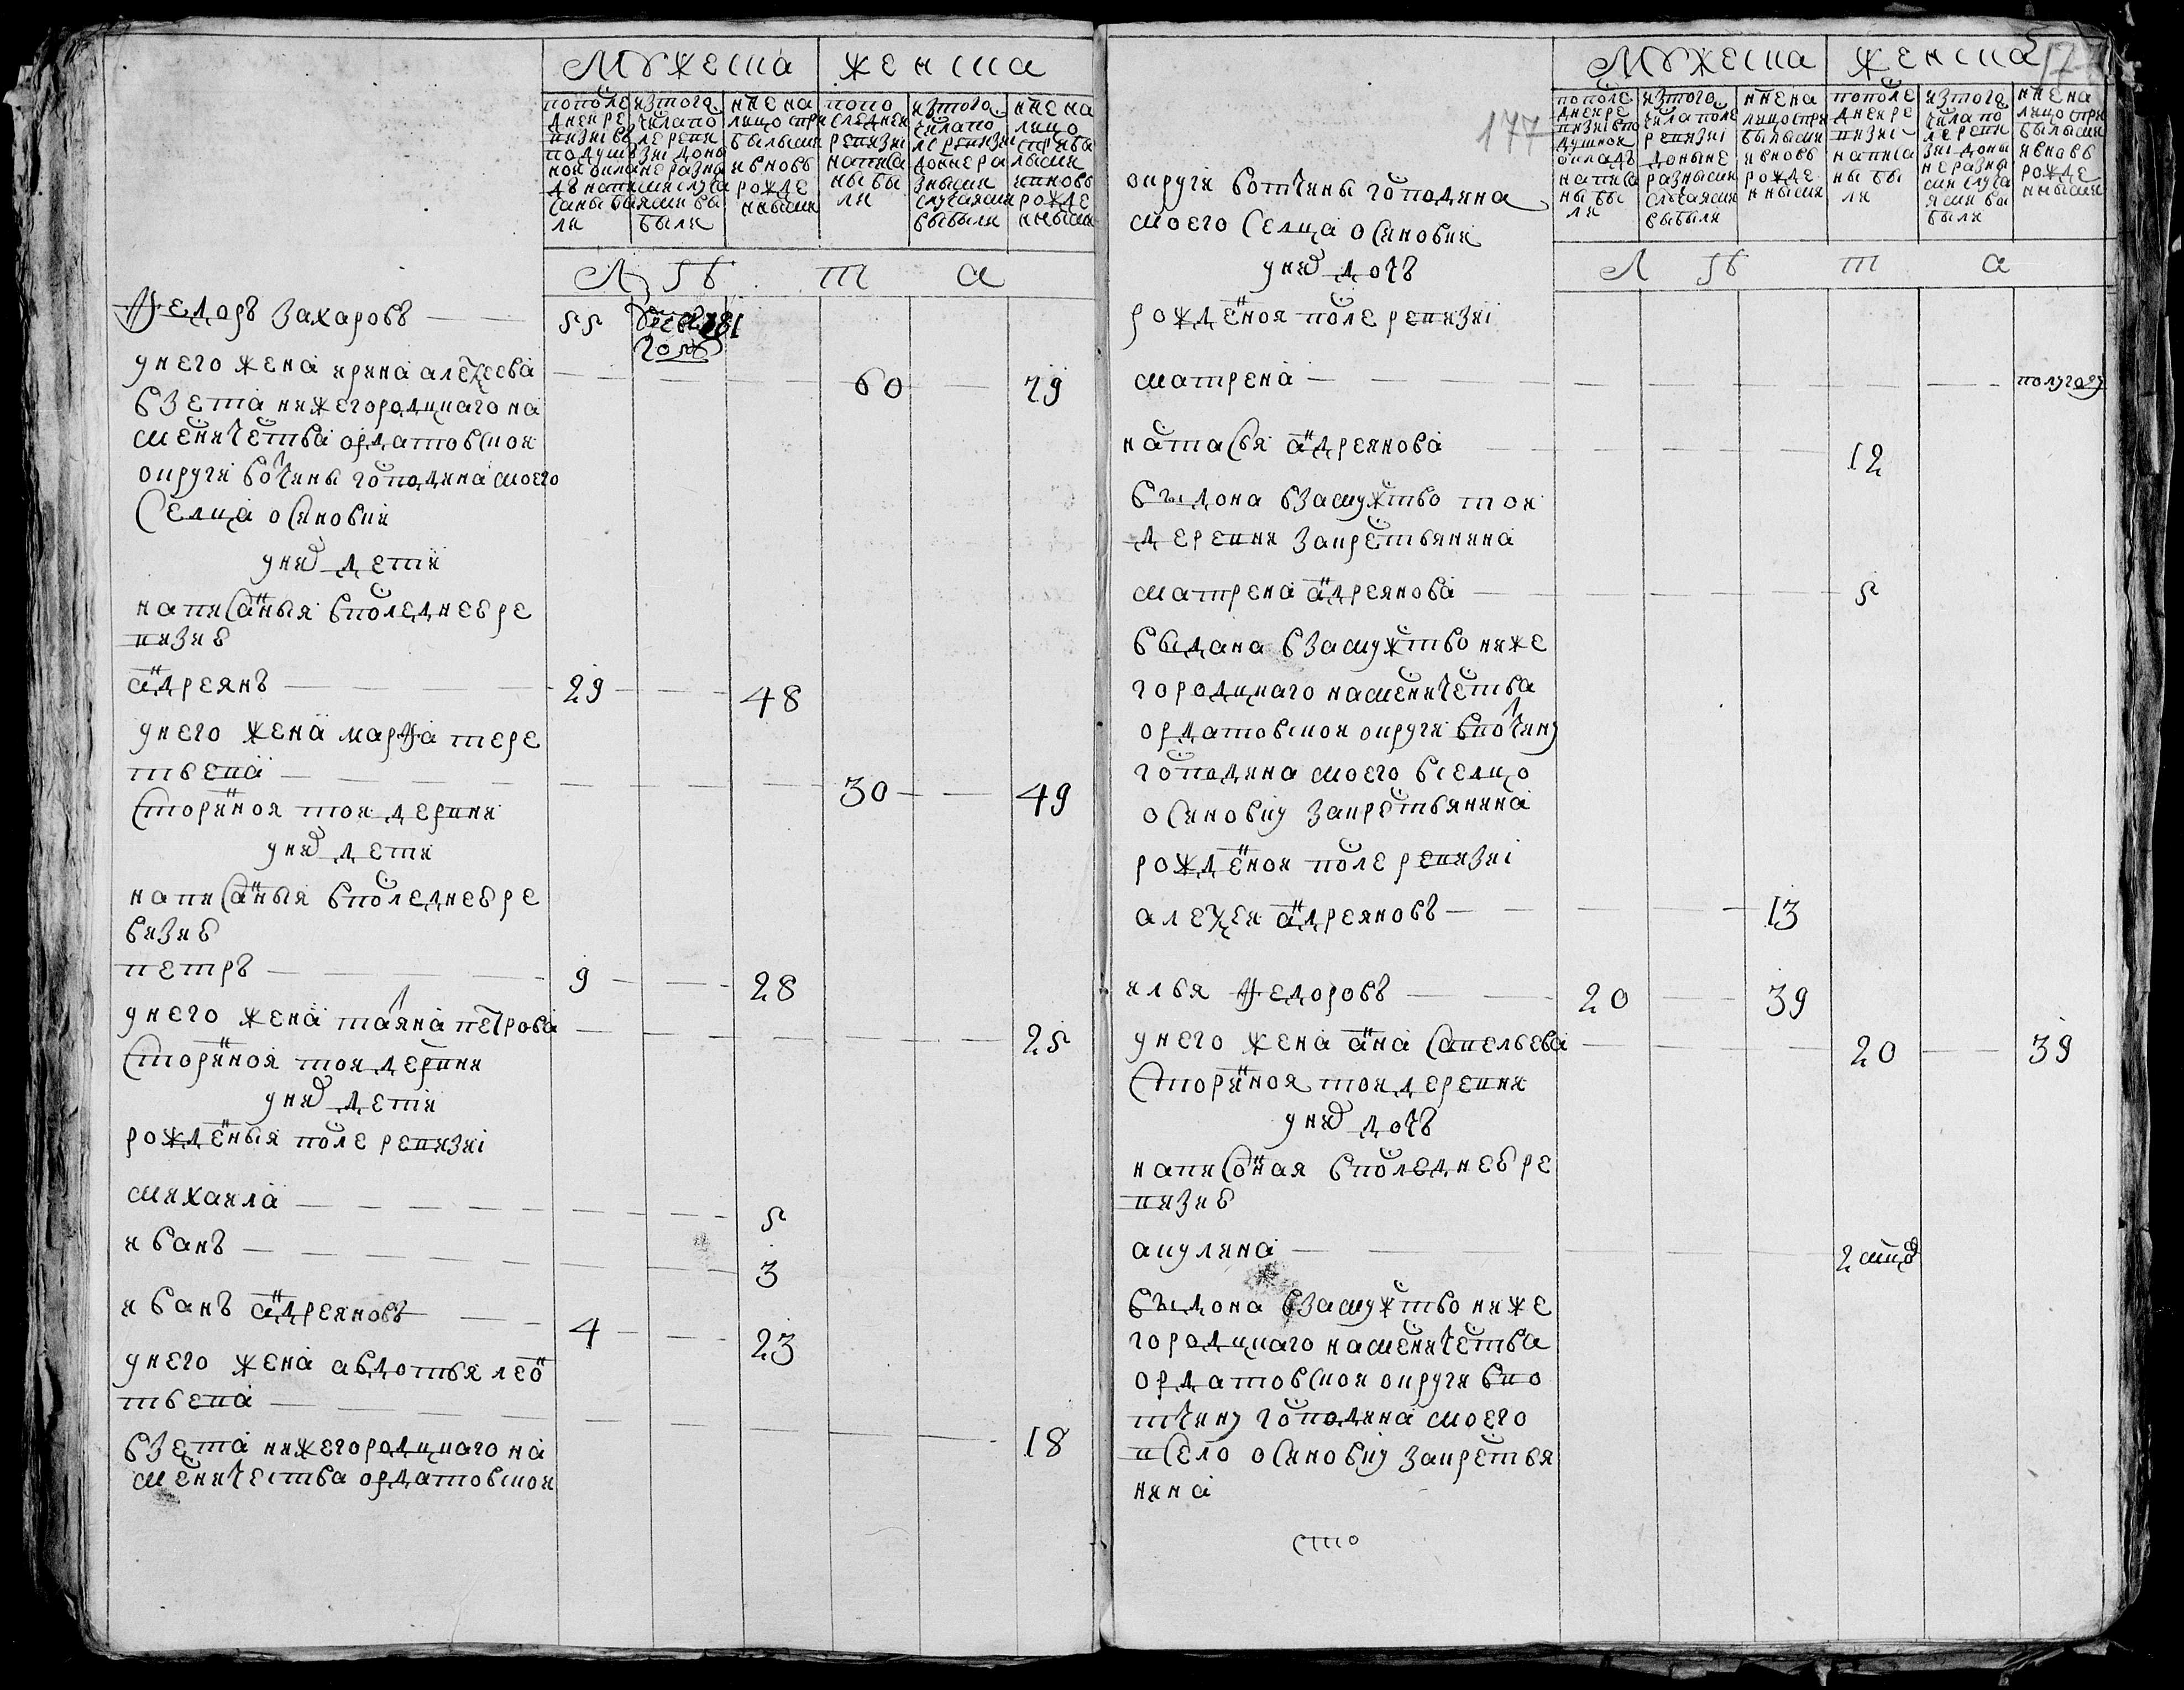 Мужеска
женска
пополе
днеи ре
визиі въ
подуш
нои окла
дъ напи
саны бы
ли
изтого
числа по
ле реви
зиі доны
не разны
ми случа
ями вы
были
ннѣ на
лицо при
былыми
ивновь
рожде
нными
попо
следнеи
ревизиі
написа
ны бы
ли
изтого
числа по
ле ревизиі
доныне ра
зными
случаями
выбыли
ннѣ на
лицо
сприбы
лыми
ивновь
рожде
нными
Л ѣ т а
Ѳедоръ Захаровъ — 55
унего жена ирина алеѯеева — 60 — 79
взета нижегородцкаго на
месничества ардатовской
округи вочины господина моего
Селца осиновки
уних дети
написаныя впоследнеѣ ре
визиѣ
андреянъ — 29 — 48
унего жена марѳа тере
нтьева — 30 — 49
Стариноя тои дервни
уних дети
написаныя впоследнеѣ ре
визиѣ
петръ — 9 — 28
унего жена таяна петрова — 25
Старинои тои дервни
уних дети
рожденыя после ревизиі
михаила — 5
иванъ — 3
иванъ андреяновъ — 4 — 23
унего жена авдотья лео
нтьева — 18
взета нижегородцкаго на
местничества ардатовскои
177
Мужеска
женска
пополе
днеи ре
визиі впо
душнои
окладъ
написа
ны бы
ли
изтого
числа поле
ревизиі
доныне
разными
случаями
выбыли
ннѣна
лицо при
былыми
ивновь
рожде
нными
пополе
днеи ре
визиі
написа
ны бы
ли
изтого
числа по
ле реви
зиі доны
не разны
ми случа
ями вы
были
ннѣна
лицо при
былыми
ивновь
рожде
нными
Л ѣ т а
округи вотчины господина
моего Селца осиновки
уних дочь
рожденоя после ревизиі
матрена — полугоду
настасья андреянова — 12
выдона взамужство тои
деревни закрестьянина
матрена андреянова — 5
выдана взамужство ниже
городцкаго наместничества
ардатовскои округи ввочину
господина моего вселцо
осиновку закрестьянина
рожденои после ревизиі
алеѯеи андреяновъ — 13
илья Ѳедоровъ — 20 — 39
унего жена анна Савельева — 20 — 39
Старинноя тои деревни
уних дочь
написоная впоследнеѣ ре
визиѣ
акулина — 2 мцов
выдона взамужство ниже
городцкаго наместничества
ардатовскои округи вво
тчину господина моего
вСело осиновку закрестья
нина